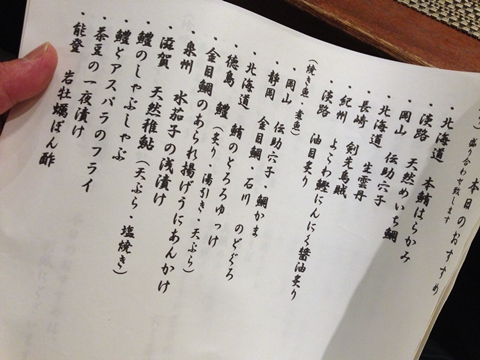 盛り合わせ致します
本日のおすすめ
・北海道 本鮪はらかみ
・淡路 天然めいち鯛
・岡山 伝助穴子
・北海道 生雲丹
・長崎 剣先烏賊
・紀州 よこわ鰹にんにく醤油炙り
・淡路 油目炙り
(焼き魚・煮魚)
・岡山 伝助穴子・鯛かま
・静岡 金目鯛・石川 のどぐろ
・北海道 鮪のとろろゆっけ
・徳島 鱧(炙り・湯引き・天ぷら)
・金目鯛のあられ揚げうにあんかけ
・泉州 水茄子の浅漬け
・滋賀 天然稚鮎(天ぷら・塩焼き)
・鱧のしゃぶしゃぶ
・鱧とアスパラのフライ
・茶豆の一夜漬け
・能登 岩牡蠣ぽん酢